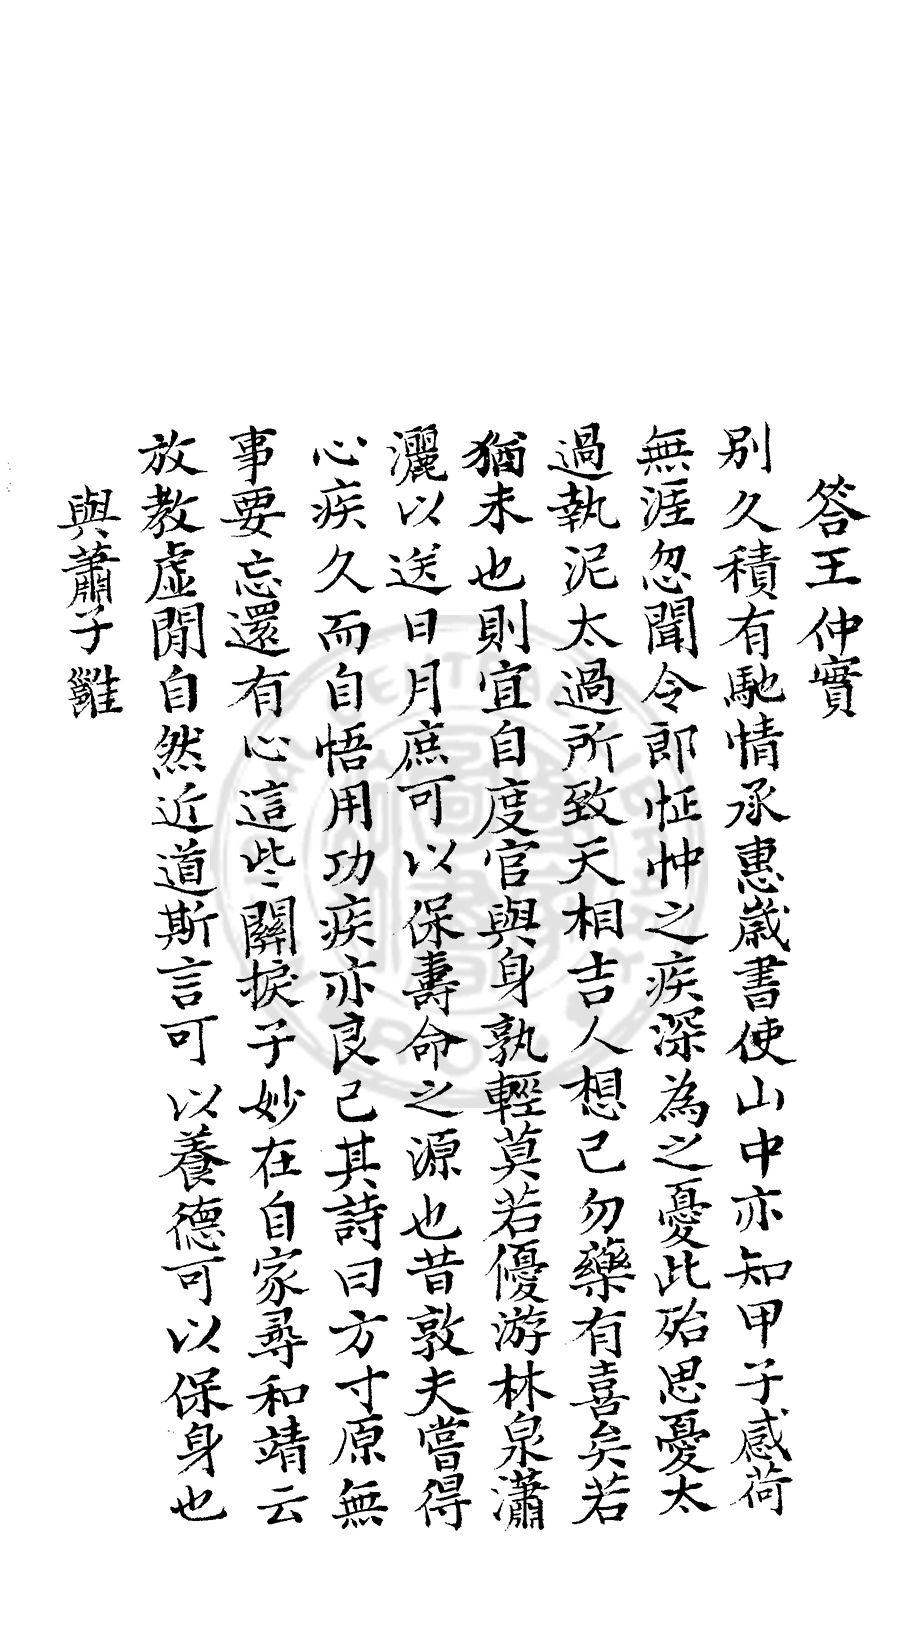 答王仲實
别久積有馳情承惠歲書使山中亦知甲子感荷
無涯忽聞令郎怔忡之疾深為之憂此殆思憂太
過執泥太過所致天相吉人想已勿藥有喜矣若
猶未也則宜自度官與身孰輕莫若優游林泉瀟
灑以送日月庶可以保壽命之源也昔敦夫嘗得
心疾久而自悟用功疾亦良已其詩曰方寸原無
事要忘還有心這些關捩子妙在自家尋和靖云
放教虛閒自然近道斯言可以養德可以保身也
與蕭子雝